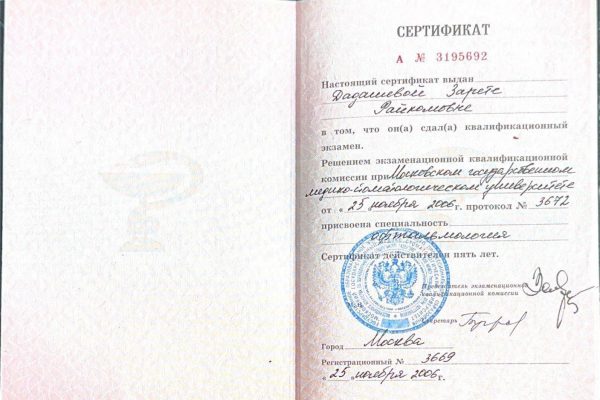 СЕРТИФИКАТ
А № 3195692
Настоящий сертификат выдан
Дадашовой Зарете
Райкомовне
в том, что он(а) сдал(а) квалификационный
экзамен.
Решением экзаменационной квалификационной
комиссии при Московском государственном
медико-стоматологическом университете
от « 25 ноября 2006г. протокол № 3672
присвоена специальность
офтальмология
Сертификат действителен пять лет.
Председатель экзаменационной
квалификационной комиссии
Секретарь
Город Москва
Регистрационный № 3669
« 25 » ноября 2006г.